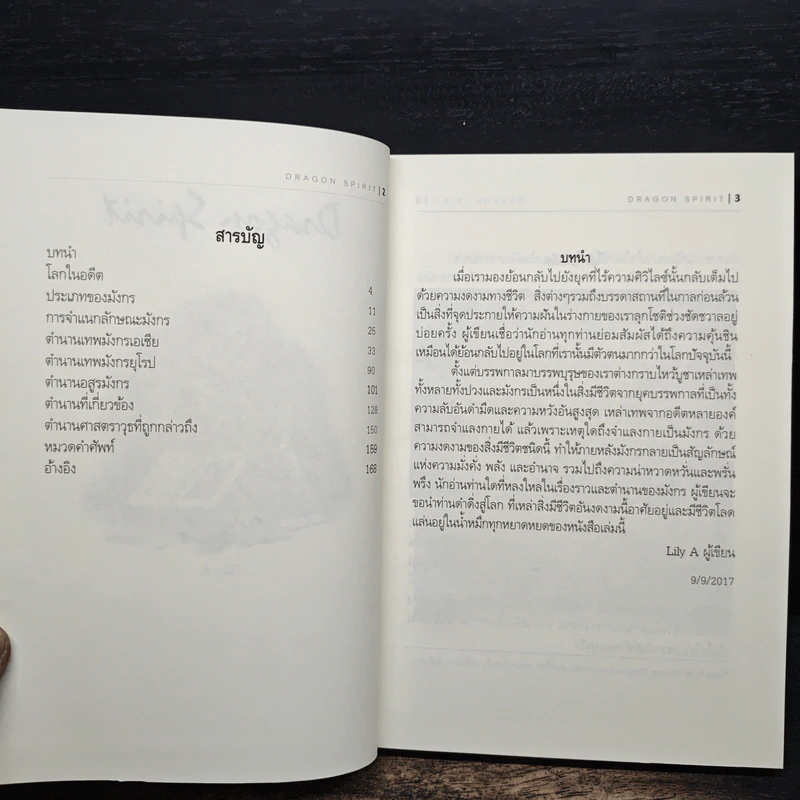 DRAGON SPIRIT | 2
สารบัญ
บทนำ
โลกในอดีต 4
ประเภทของมังกร 11
การจำแนกลักษณะมังกร 25
ตำนานเทพมังกรเอเชีย 33
ตำนานเทพมังกรยุโรป 90
ตำนานอสูรมังกร 101
ตำนานที่เกี่ยวข้อง 128
ตำนานศาสตราวุธที่ถูกกล่าวถึง 150
หมวดคำศัพท์ 159
อ้างอิง 168
DRAGON SPIRIT | 3
บทนำ
เมื่อเรามองย้อนกลับไปยังยุคที่ไร้ความศิวิไลซ์นั้นกลับเต็มไป
ด้วยความงดงามทางชีวิต สิ่งต่างๆรวมถึงบรรดาสถานที่ในกาลก่อนล้วน
เป็นสิ่งที่จุดประกายให้ความฝันในร่างกายของเราลุกโชติช่วงชัชวาลอยู่
บ่อยครั้ง ผู้เขียนเชื่อว่านักอ่านทุกท่านย่อมสัมผัสได้ถึงความคุ้นชิน
เหมือนได้ย้อนกลับไปอยู่ในโลกที่เรานั้นมีตัวตนมากกว่าในโลกปัจจุบันนี้
ตั้งแต่บรรพกาลมาบรรพบุรุษของเราต่างกราบไหว้บูชาเหล่าเทพ
ทั้งหลายทั้งปวงและมังกรเป็นหนึ่งในสิ่งมีชีวิตจากยุคบรรพกาลที่เป็นทั้ง
ความลับอันดำมืดและความหวังอันสูงสุด เหล่าเทพจากอดีตหลายองค์
สามารถจำแลงกายได้ แล้วเพราะเหตุใดถึงจำแลงกายเป็นมังกร ด้วย
ความงดงามของสิ่งมีชีวิตชนิดนี้ ทำให้ภายหลังมังกรกลายเป็นสัญลักษณ์
แห่งความมั่งคั่ง พลัง และอำนาจ รวมไปถึงความน่าหวาดหวั่นและพรั่น
พรึง นักอ่านท่านใดที่หลงใหลในเรื่องราวและตำนานของมังกร ผู้เขียนจะ
ขอนำท่านดำดิ่งสู่โลก ที่เหล่าสิ่งมีชีวิตอันงดงามนี้อาศัยอยู่และมีชีวิตโลด
แล่นอยู่ในน้ำหมึกทุกหยาดหยดของหนังสือเล่มนี้
Lily A ผู้เขียน
9/9/2017